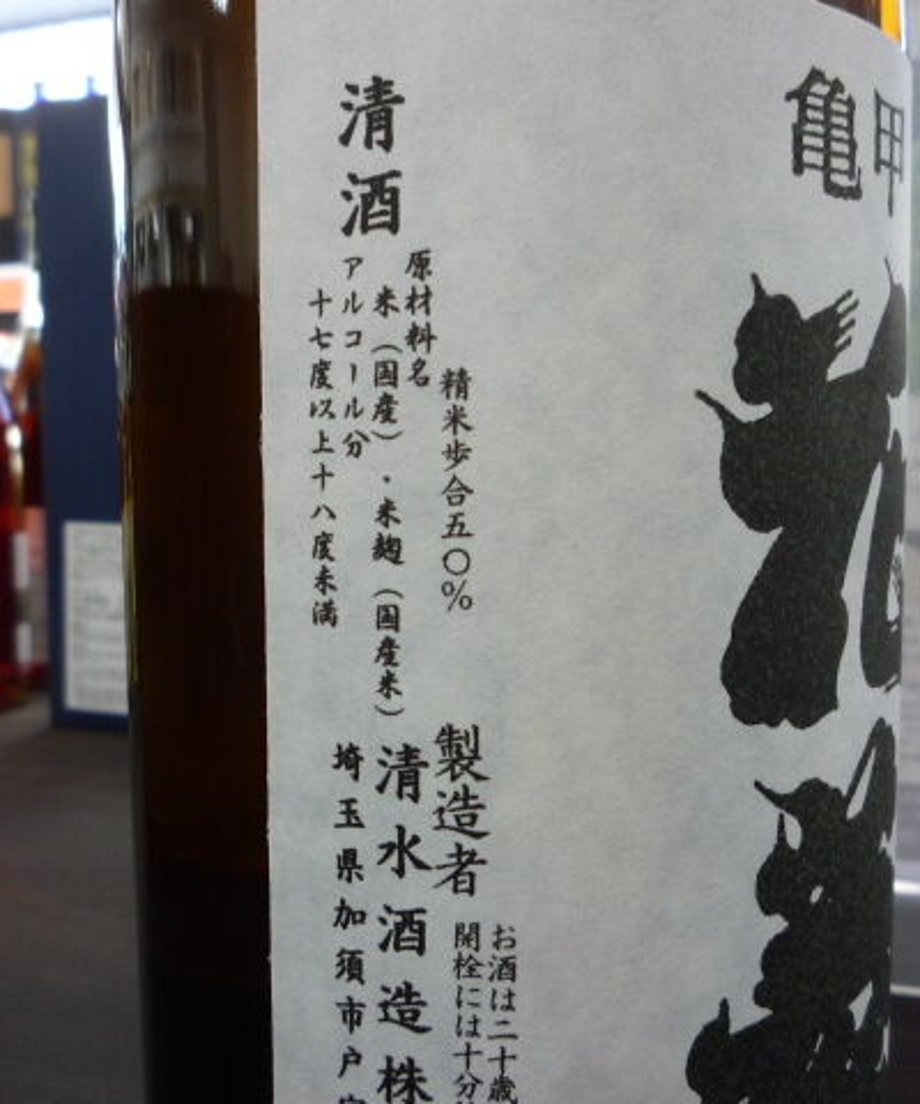 亀甲
精米歩合五〇%
原材料名
米(国産)・米麹(国産米)
アルコール分
十七度以上十八度未満
清酒
お酒は二十歳
開栓には十分
製造者
清水酒造株
埼玉県加須市戸